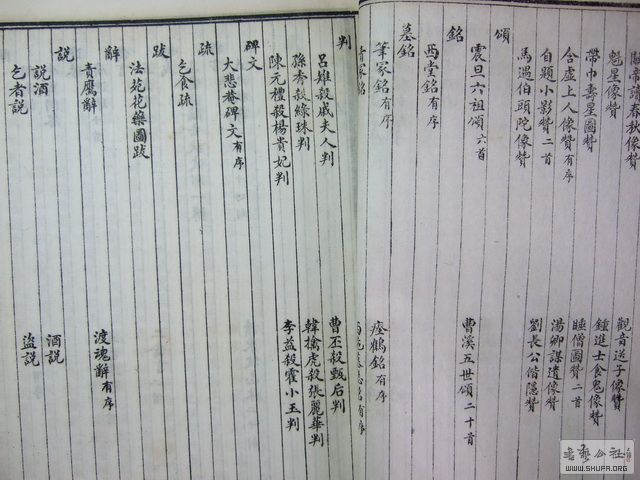 讀春秋像贊 觀音送子像贊
魁星像贊 鍾進士食鬼像贊
帶巾壽星圖贊 睡僧圖贊二首
合虛上人像贊有序 湯卿謀遺像贊
自題小影贊二首 劉長公偕隱贊
馬遇伯頭陀像贊
頌
震旦六祖頌六首 曹溪五世頌二十首
銘
西堂銘有序
墓銘
筆冢銘有序 瘞鶴銘有序
冢銘 銘有序
判
呂雉殺戚夫人判 曹丕殺甄后判
孫秀殺綠珠判 韓擒虎殺張麗華判
陳元禮殺楊貴妃判 李益殺霍小玉判
碑文
大悲菴碑文有序
疏
乞食疏
跋
法苑花藥圖跋
辭
責鷹辭 渡魂辭有序
說
說酒 酒說
乞者說 盜說
WWW.SHUFA.ORG